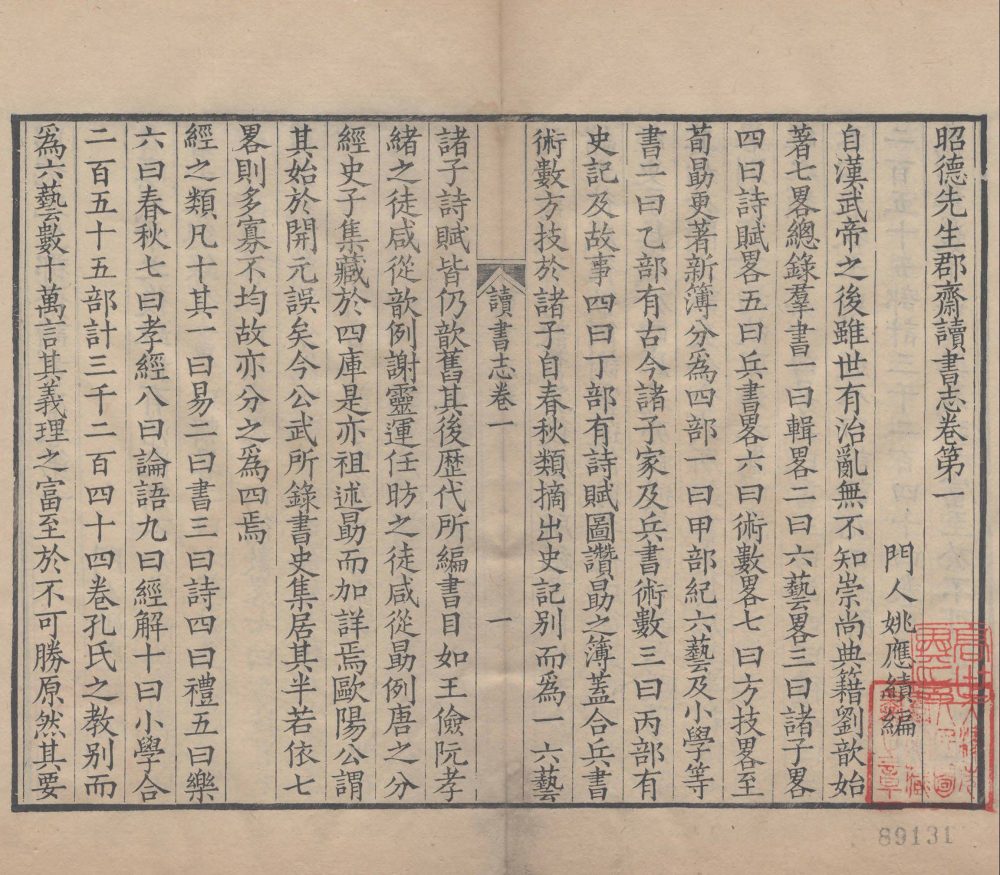 昭德先生郡齋讀書志卷第一
門人姚應績編
自漢武帝之後雖世有治亂無不知崇尚典籍劉歆始
著七畧總錄羣書一曰輯畧二曰六藝畧三曰諸子畧
四曰詩賦畧五曰兵書畧六曰術數畧七曰方技畧至
荀勗更著新簿分爲四部一曰甲部紀六藝及小學等
書二曰乙部有古今諸子家及兵書術數三曰丙部有
史記及故事四曰丁部有詩賦圖讚勗之簿蓋合兵書
術數方技於諸子自春秋類摘出史記别而爲一六藝
讀書志卷一
一
諸子詩賦皆仍歆舊其後歷代所編書目如王儉阮孝
緒之徒咸從歆例謝靈運任昉之徒咸從勗例唐之分
經史子集藏於四庫是亦祖述勗而加詳焉歐陽公謂
其始於開元誤矣今公武所錄書史集居其半若依七
畧則多寡不均故亦分之爲四焉
經之類凡十其一曰易二曰書三曰詩四曰禮五曰樂
六曰春秋七曰孝經八曰論語九曰經解十曰小學合
二百五十五部計三千二百四十四卷孔氏之教别而
爲六藝數十萬言其義理之富至於不可勝原然其要
89131